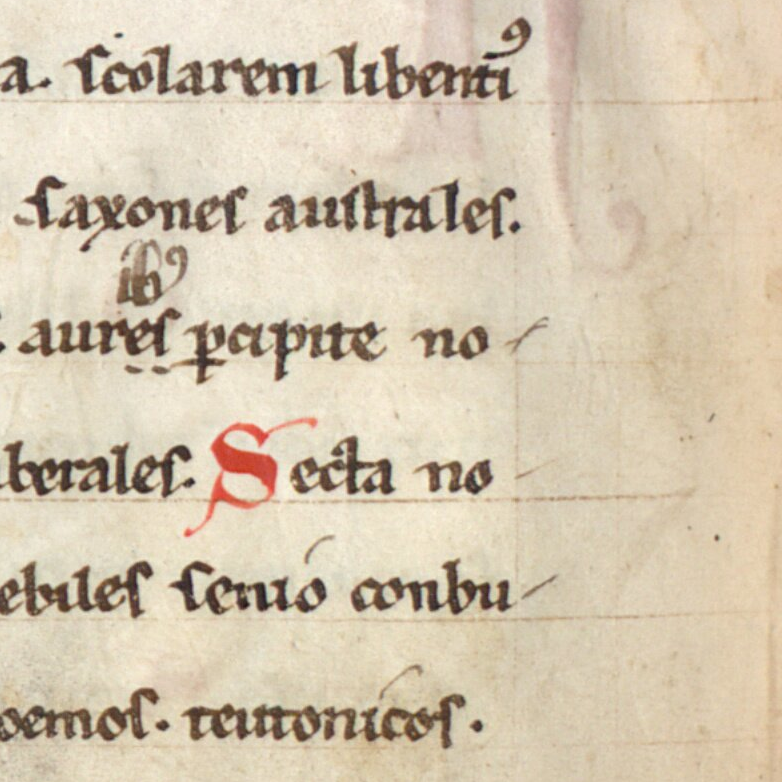 a. scolarem libenti⁹
Saxones australes.
ib⁹
aures ꝑcipite no-
berales. Secta no-
ebiles senio conbu-
oemos. teutonicos.